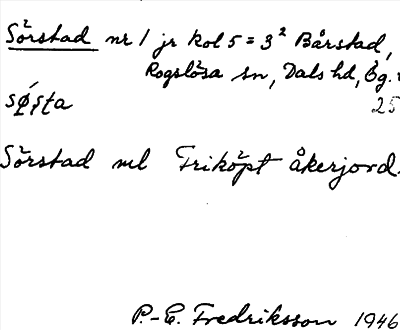 Sörstad nr 1 jr kol 5 = 3² Bårstad,
Rogslösa sn, Dals hd, Ög.
25
Sörstad ml Friköpt åkerjord.
P.-E. Fredriksson 1946